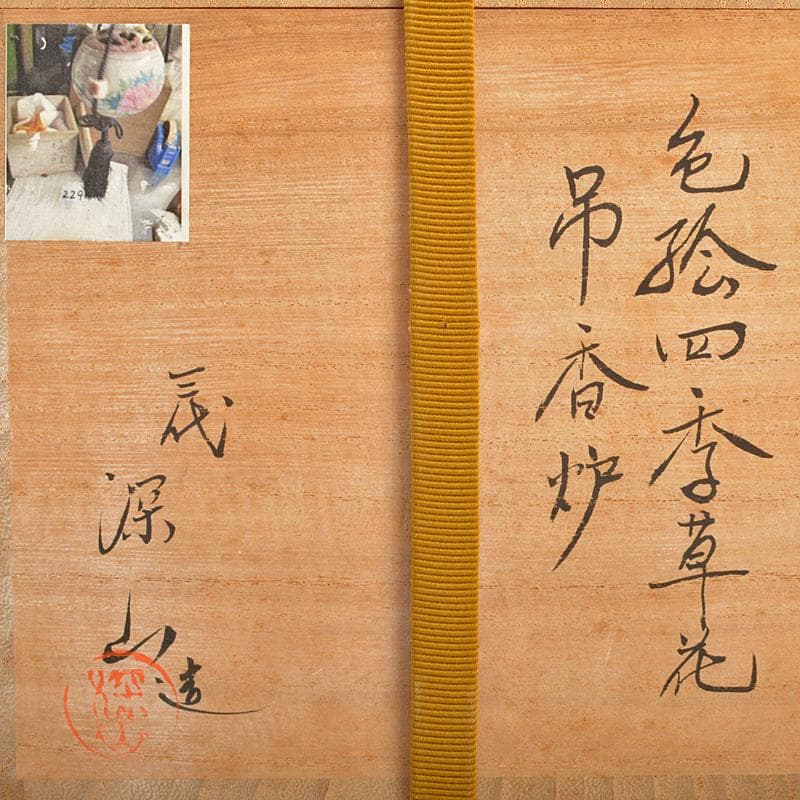 色絵四季草花
吊香炉
三代
深
山造
229